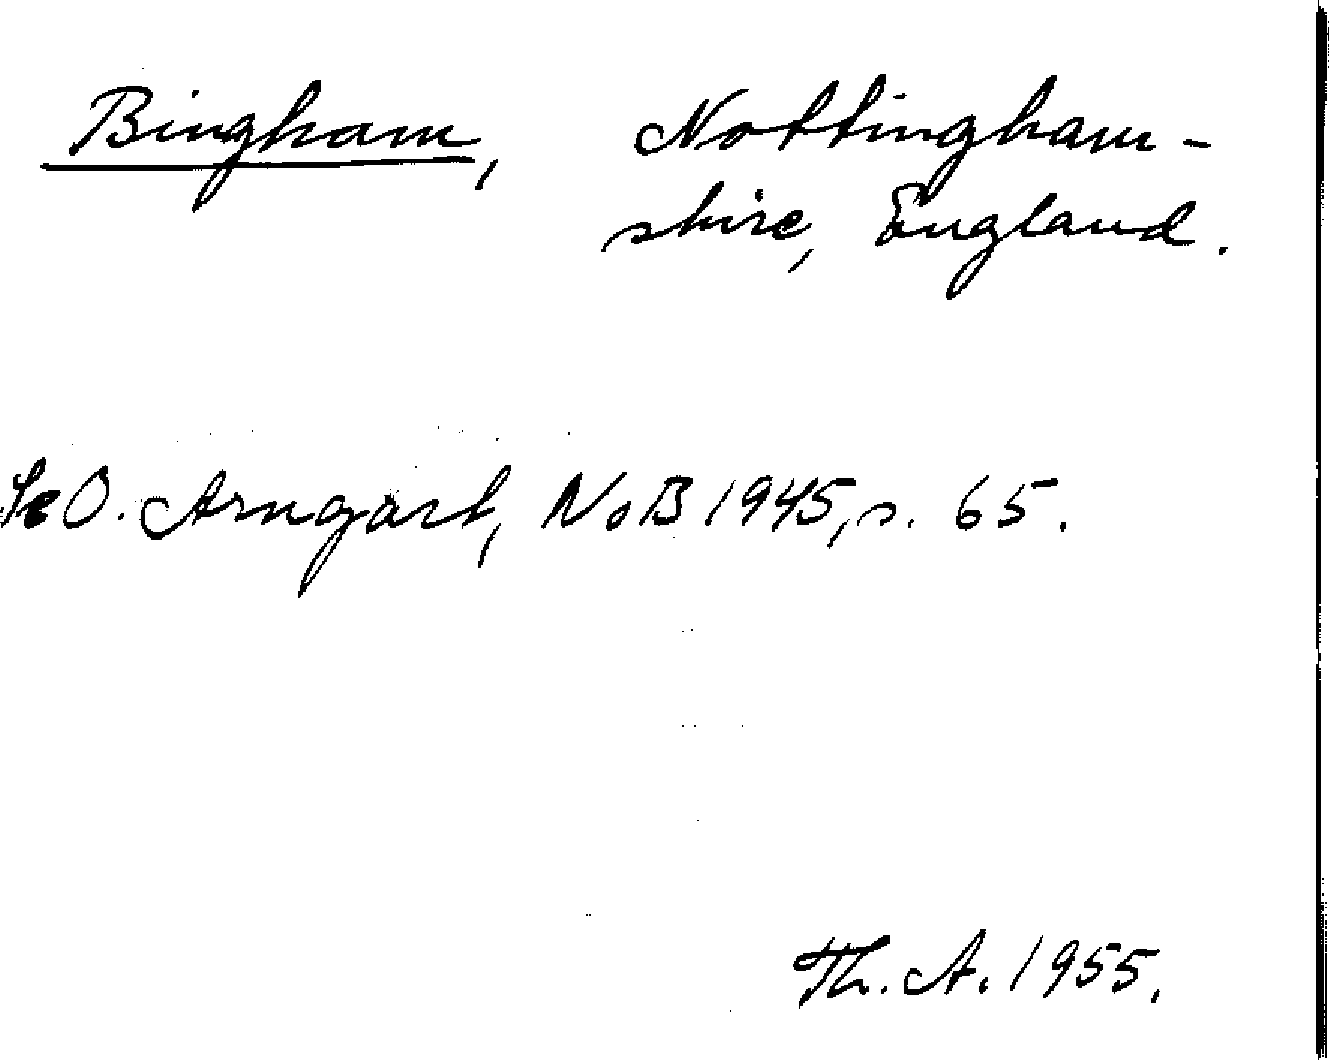 Bingham, Nottingham-
shire, England.
Se O. Arngart, NoB 1945, s. 65.
Th. A. 1955.